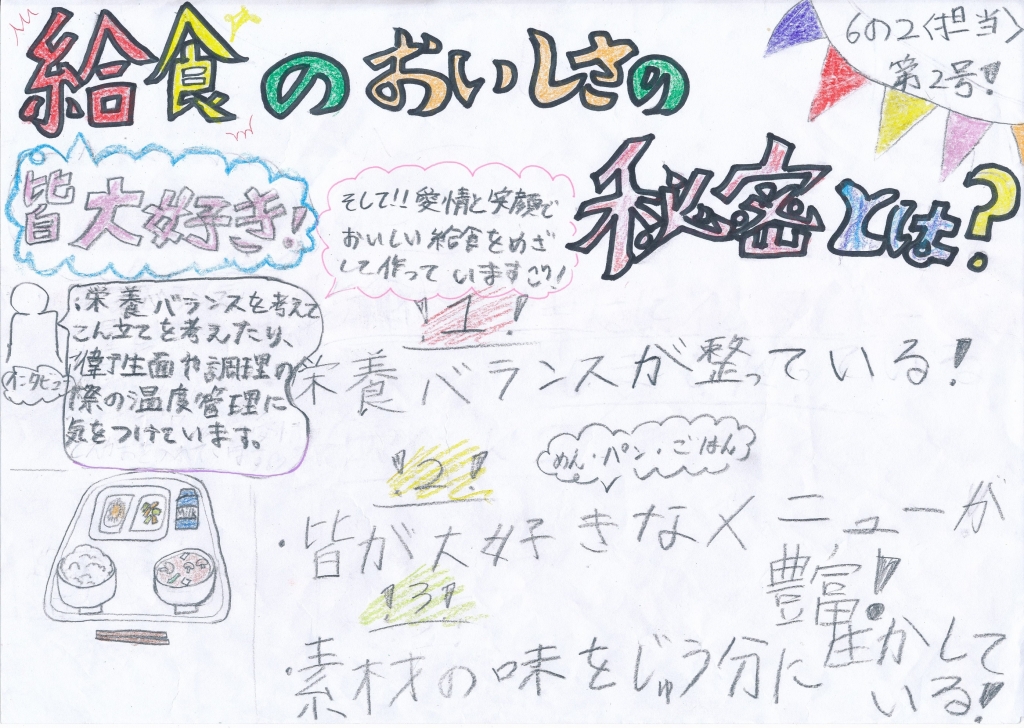 給食のおいしさの
秘密とは?
6の2〈担当〉
第2号!
皆大好き!
そして!!愛情と笑顔で
おいしい給食をめざ
して作っています
栄養バランスを考えて
こん立てを考えたり、
衛生面や調理の
際の温度管理に
気をつけています。
インタビュー
1!
栄養バランスが整っている!
2!
めん・パン・ごはん
・皆が大好きなメニューが
豊富!
3!
・素材の味をじゅう分に
生かして
いる!